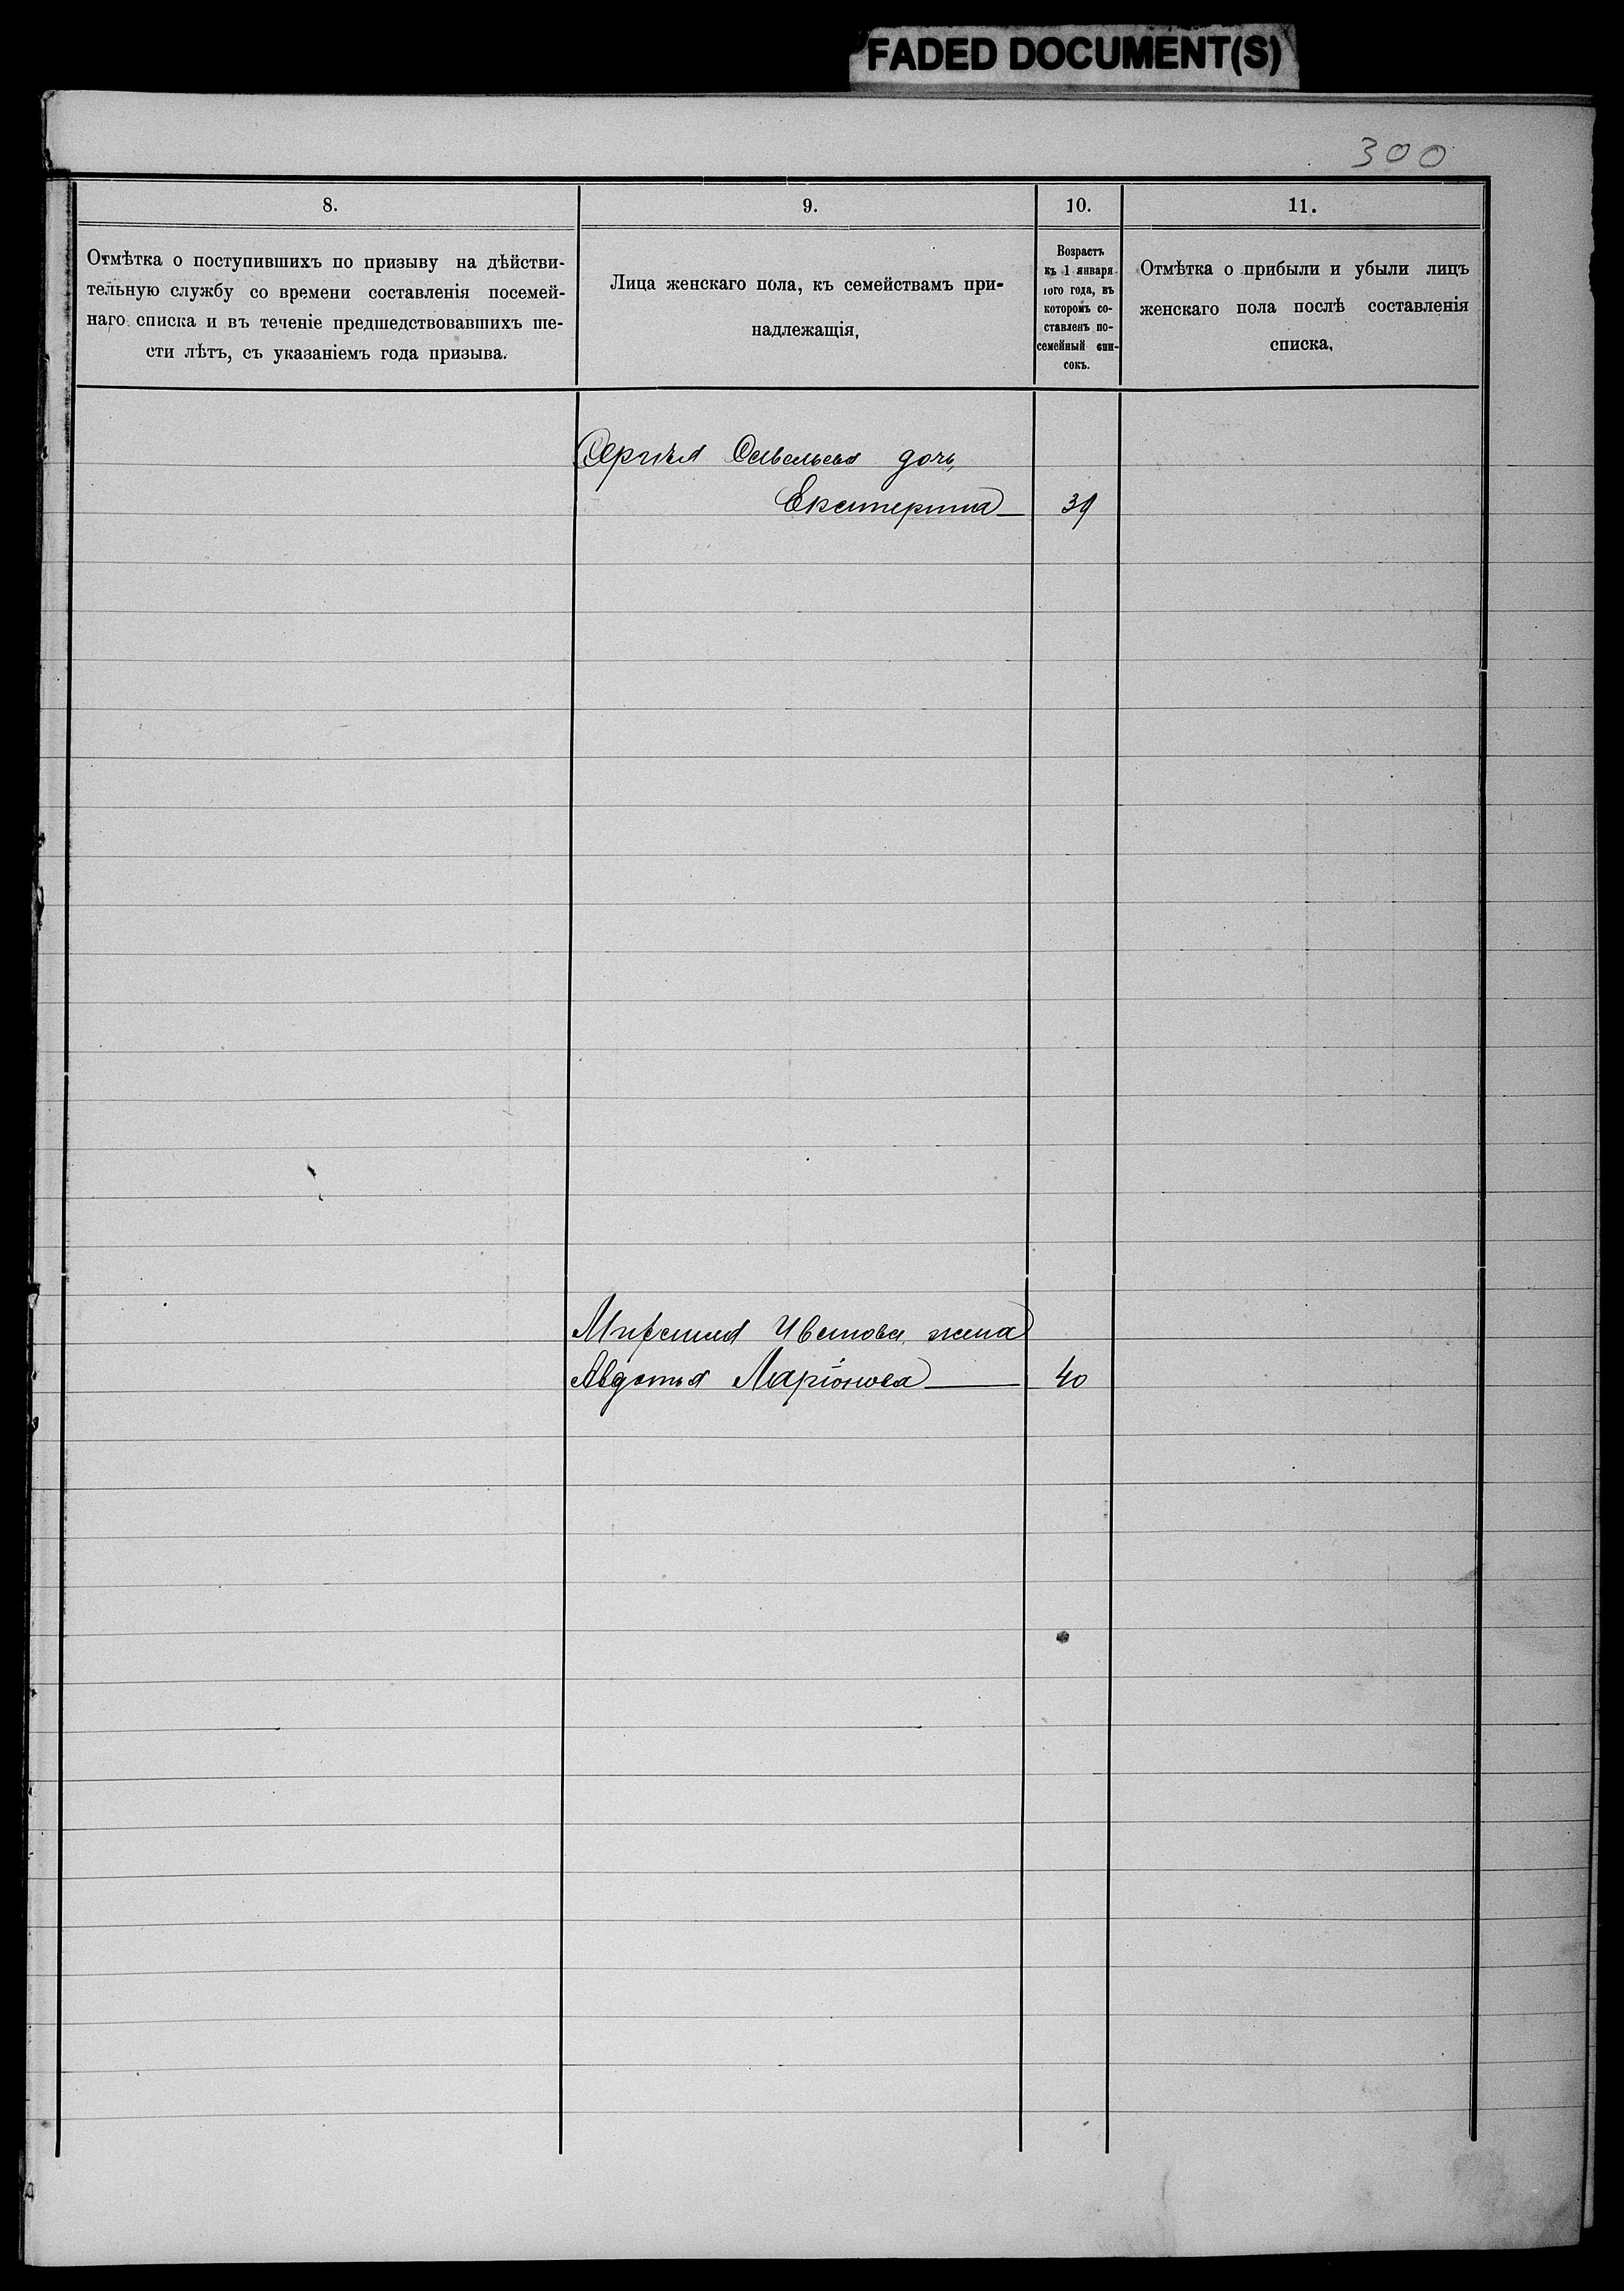 FADED DOCUMENT(S)
300
8.
9.
10.
11.
Отмѣтка о поступившихъ по призыву на дѣйстви-
тельную службу со времени составленія посемей-
наго списка и въ теченіе предшедствовавшихъ ше-
сти лѣтъ, съ указаніемъ года призыва.
Лица женскаго пола, къ семействамъ при-
надлежащія,
Возрастъ
къ 1 января
того года, въ
которомъ со-
ставленъ по-
семейный спи-
сокъ.
Отмѣтка о прибыли и убыли лицъ
женскаго пола послѣ составленія
списка,
Сергѣя Савельева дочь
Екатерина 39
Иванова жена
Авдотья Ларіонова 40